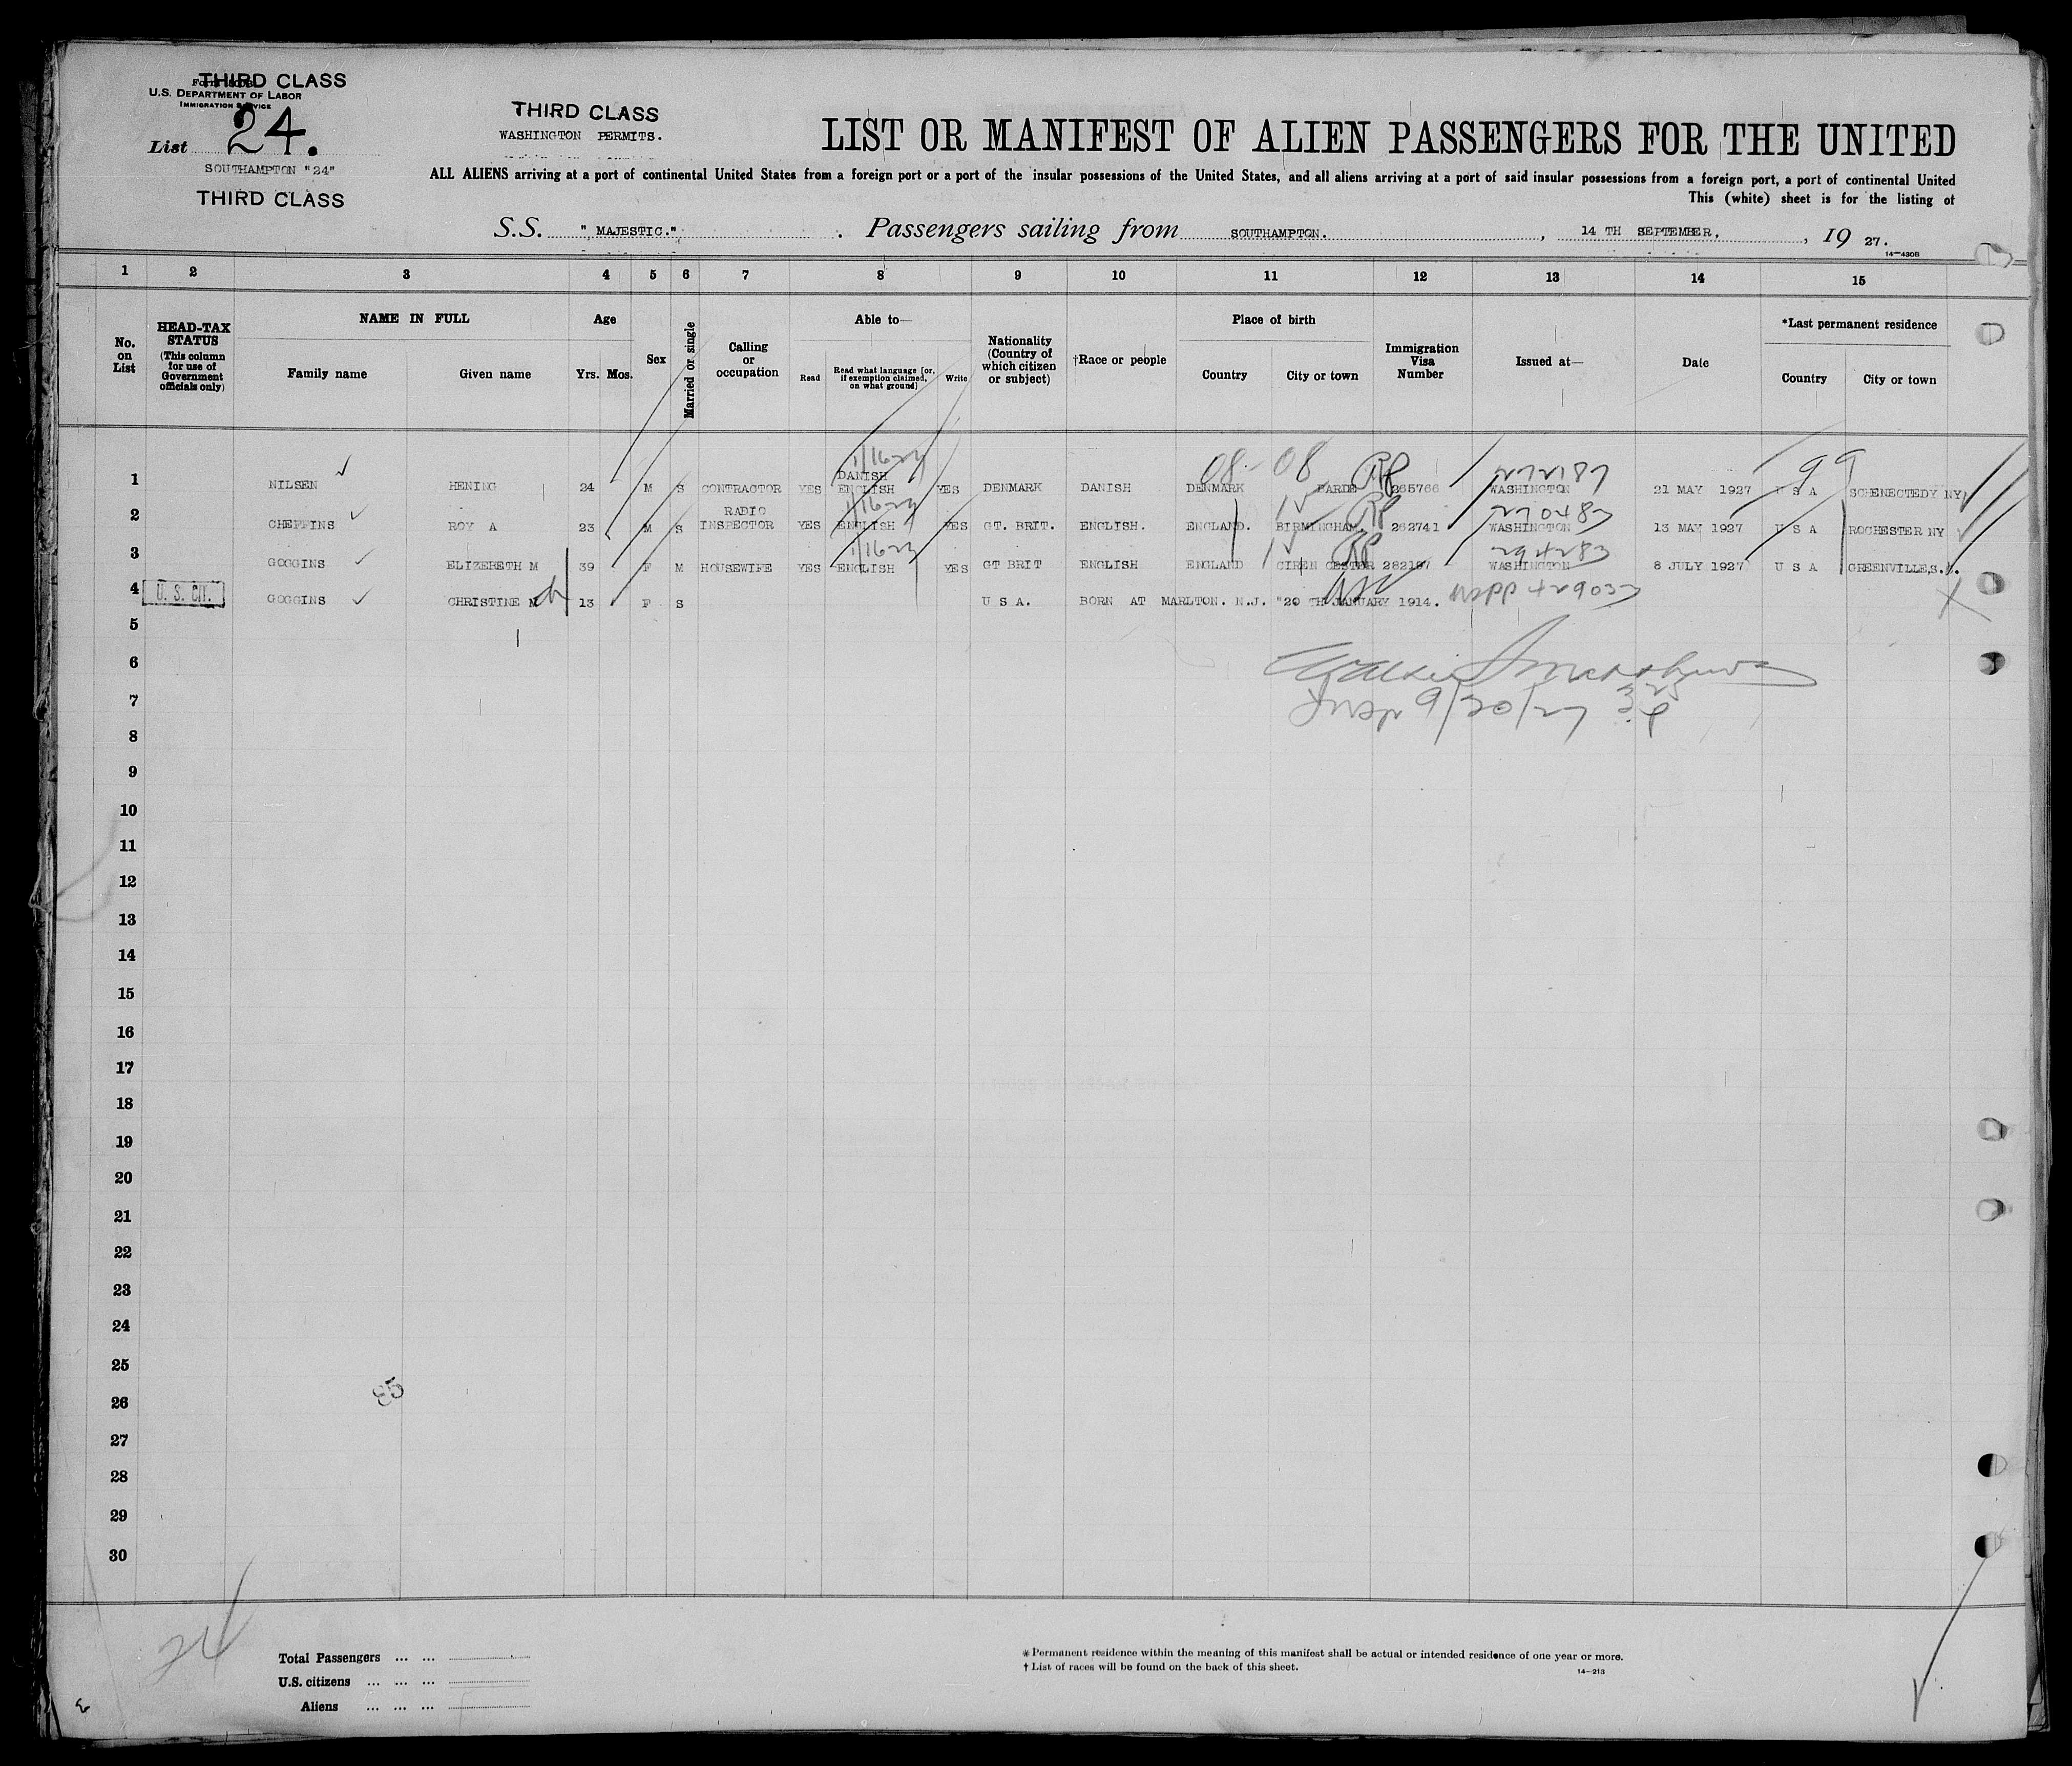 THIRD CLASS
U.S. DEPARTMENT OF LABOR
IMMIGRATION SERVICE
List 24.
SOUTHAMPTON "24"
THIRD CLASS
THIRD CLASS
WASHINGTON PERMITS.
LIST OR MANIFEST OF ALIEN PASSENGERS FOR THE UNITED
ALL ALIENS arriving at a port of continental United States from a foreign port or a port of the insular possessions of the United States, and all aliens arriving at a port of said insular possessions from a foreign port, a port of continental United
This (white) sheet is for the listing of
S.S. " MAJESTIC." . Passengers sailing from SOUTHAMPTON. , 14 TH SEPTEMBER. , 19 27.
14—430B
1 2 3 4 5 6 7 8 9 10 11 12 13 14 15
No. on List
HEAD-TAX STATUS (This column for use of Government officials only)
NAME IN FULL
Family name Given name
Age
Yrs. Mos.
Sex
Married or single
Calling or occupation
Able to—
Read
Read what language [or, if exemption claimed, on what ground]
Write
Nationality (Country of which citizen or subject)
†Race or people
Place of birth
Country City or town
Immigration Visa Number
Issued at—
Date
*Last permanent residence
Country City or town
08 - 08 272187 99
DANISH
1 NILSEN HENING 24 M S CONTRACTOR YES ENGLISH YES DENMARK DANISH DENMARK 265766 WASHINGTON 21 MAY 1927 U S A SCHENECTEDY NY
RADIO
2 CHEFFINS ROY A 23 M S INSPECTOR YES ENGLISH YES GT. BRIT. ENGLISH. ENGLAND. BIRMINGHAM. 262741 WASHINGTON 13 MAY 1927 U S A ROCHESTER NY
3 GOGGINS ELIZEBETH M 39 F M HOUSEWIFE YES ENGLISH YES GT BRIT ENGLISH ENGLAND CIREN CESTER 282187 WASHINGTON 8 JULY 1927 U S A GREENVILLE,S.
4 U. S. CIT. GOGGINS CHRISTINE M 13 F S U S A. BORN AT MARLTON. N.J. "20 TH JANUARY 1914.
5
6
7 9/20/27
8
9
10
11
12
13
14
15
16
17
18
19
20
21
22
23
24
25
26
27
28
29
30
24
Total Passengers ... ...
U.S. citizens ... ... ...
Aliens ... ... ...
* Permanent residence within the meaning of this manifest shall be actual or intended residence of one year or more.
† List of races will be found on the back of this sheet.
14—213